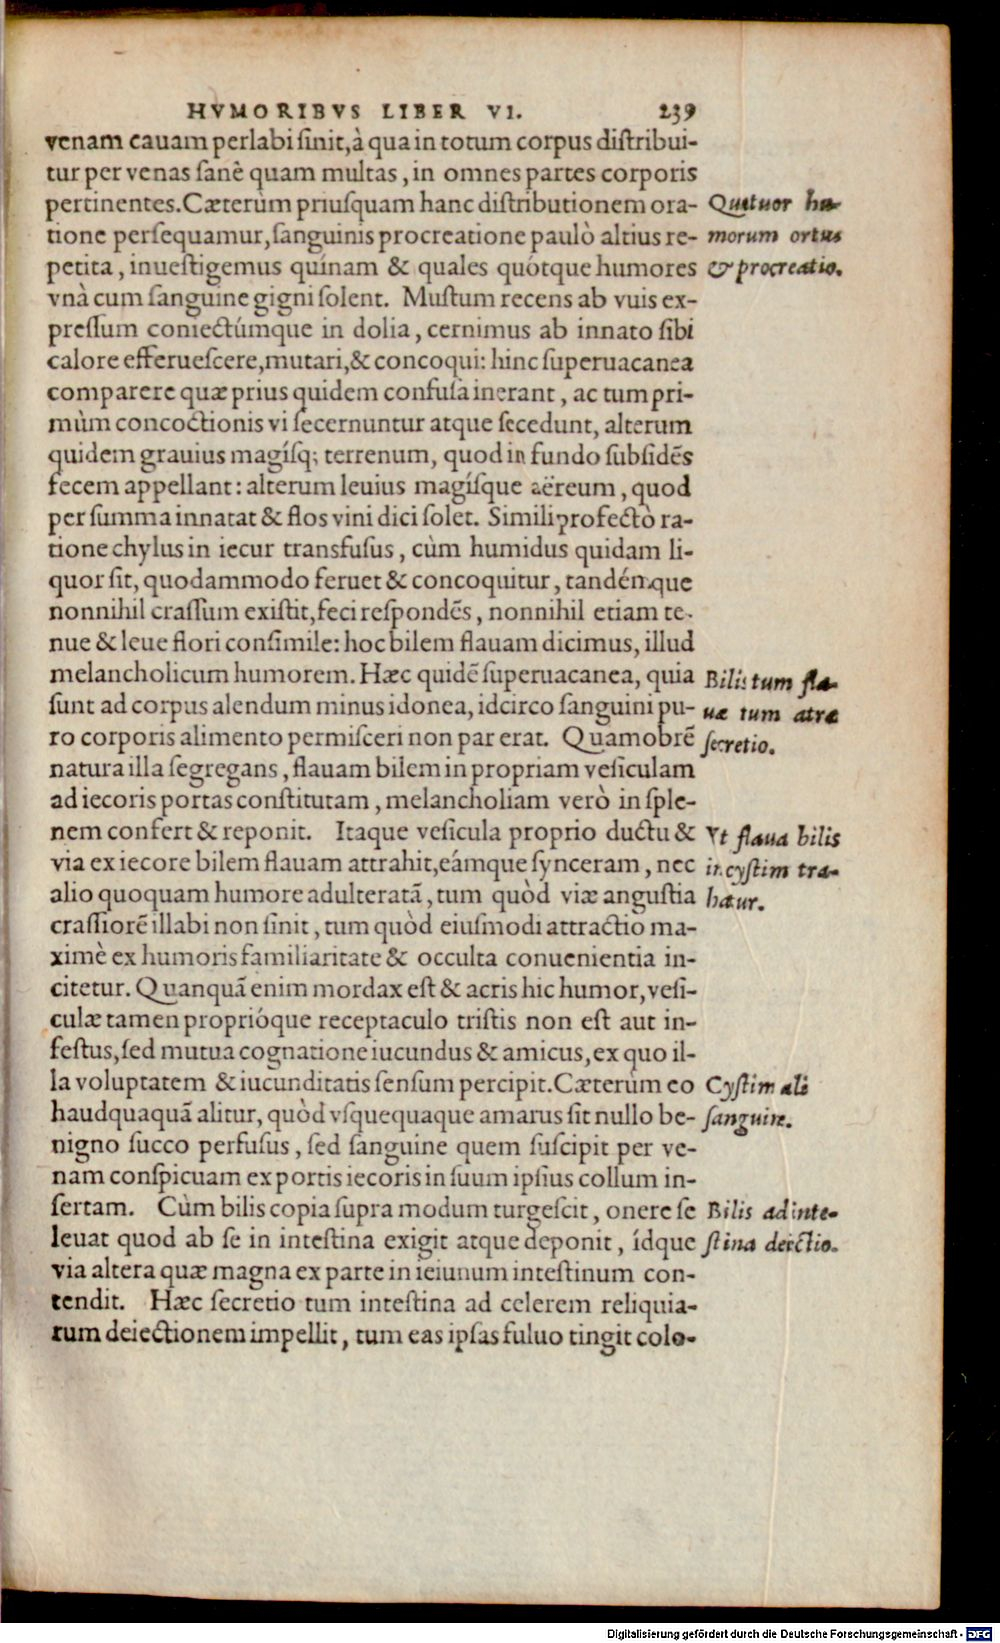 HVMORIBVS LIBER VI. 239
venam cauam perlabi sinit, à qua in totum corpus distribui-
tur per venas sanè quam multas, in omnes partes corporis
pertinentes. Cæterùm priusquam hanc distributionem ora-
tione persequamur, sanguinis procreatione paulò altius re-
petita, inuestigemus quínam & quales quótque humores
vnà cum sanguine gigni solent. Mustum recens ab vuis ex-
pressum coniectúmque in dolia, cernimus ab innato sibi
calore efferuescere, mutari, & concoqui: hinc superuacanea
comparere quæ prius quidem confusa inerant, ac tum pri-
mùm concoctionis vi secernuntur atque secedunt, alterum
quidem grauius magísq; terrenum, quod in fundo subsidẽs
fecem appellant: alterum leuius magísque aëreum, quod
per summa innatat & flos vini dici solet. Simili profectò ra-
tione chylus in iecur transfusus, cùm humidus quidam li-
quor sit, quodammodo feruet & concoquitur, tandémque
nonnihil crassum existit, feci respondẽs, nonnihil etiam te-
nue & leue flori consimile: hoc bilem flauam dicimus, illud
melancholicum humorem. Hæc quidẽ superuacanea, quia
sunt ad corpus alendum minus idonea, idcirco sanguini pu-
ro corporis alimento permisceri non par erat. Quamobrẽ
natura illa segregans, flauam bilem in propriam vesiculam
ad iecoris portas constitutam, melancholiam verò in sple-
nem confert & reponit. Itaque vesicula proprio ductu &
via ex iecore bilem flauam attrahit, eámque synceram, nec
alio quoquam humore adulteratã, tum quòd viæ angustia
crassiorẽ illabi non sinit, tum quòd eiusmodi attractio ma-
ximè ex humoris familiaritate & occulta conuenientia in-
citetur. Quanquã enim mordax est & acris hic humor, vesi-
culæ tamen proprióque receptaculo tristis non est aut in-
festus, sed mutua cognatione iucundus & amicus, ex quo il-
la voluptatem & iucunditatis sensum percipit. Cæterùm eo
haudquaquã alitur, quòd vsquequaque amarus sit nullo be-
nigno succo perfusus, sed sanguine quem suscipit per ve-
nam conspicuam ex portis iecoris in suum ipsius collum in-
sertam. Cùm bilis copia supra modum turgescit, onere se
leuat quod ab se in intestina exigit atque deponit, ídque
via altera quæ magna ex parte in ieiunum intestinum con-
tendit. Hæc secretio tum intestina ad celerem reliquia-
rum deiectionem impellit, tum eas ipsas fuluo tingit colo-
Quatuor hu-
morum ortus
& procreatio.
Bilis tum fla-
uæ tum atræ
secretio.
Vt flaua bilis
in cystim tra-
hatur.
Cystim ali
sanguine.
Bilis ad inte-
stina deiectio.
Digitalisierung gefördert durch die Deutsche Forschungsgemeinschaft - DFG